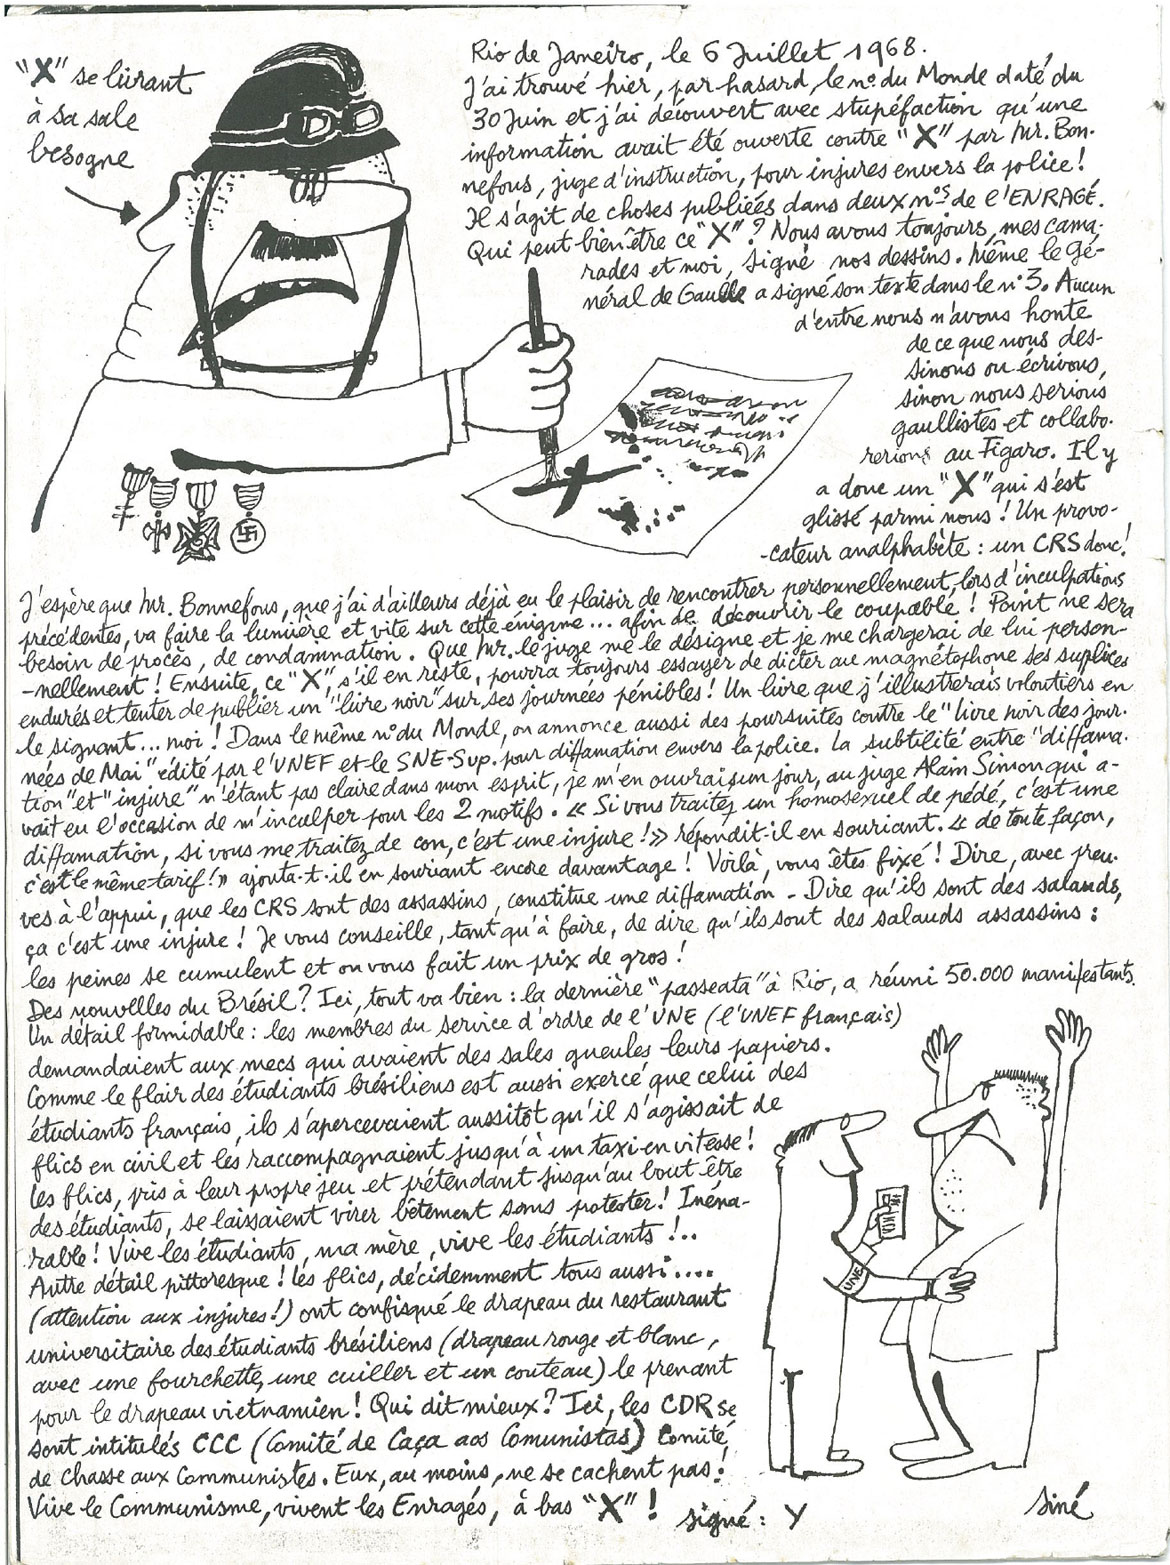 "X" se livrant
à sa sale
besogne
Rio de Janeiro, le 6 Juillet 1968.
J'ai trouvé hier, par hasard, le no du Monde daté du
30 Juin et j'ai découvert avec stupéfaction qu'une
information avait été ouverte contre "X" par Mr. Bon-
nefous, juge d'instruction, pour injures envers la police!
Il s'agit de choses publiées dans deux nos de l'ENRAGÉ.
Qui peut-bien être ce "X"? Nous avons toujours, mes cama-
rades et moi, signé nos dessins. Même le Gé-
néral de Gaulle a signé son texte dans le n° 3. Aucun
d'entre nous n'avons honte
de ce que nous des-
sinons ou écrivons,
sinon nous serions
gaullistes et collabo-
rerions au Figaro. Il y
a donc un "X" qui s'est
glissé parmi nous! Un provo-
-cateur analphabète : un CRS donc!
J'espère que Mr. Bonnefous, que j'ai d'ailleurs déjà eu le plaisir de rencontrer personnellement, lors d'inculpations
précédentes, va faire la lumière et vite sur cette énigme... afin de découvrir le coupable! Point ne sera
besoin de procès, de condamnation. Que Mr. le juge me le désigne et je me chargerai de lui person-
-nellement! Ensuite, ce "X", s'il en reste, pourra toujours essayer de dicter au magnétophone ses suplices
endurés et tenter de publier un "livre noir" sur ses journées pénibles! Un livre que j'illustrerais volontiers en
le signant... moi! Dans le même n° du Monde, on annonce aussi des poursuites contre le "livre noir des jour-
nées de Mai" édité par l'UNEF et le SNE-Sup. pour diffamation envers la police. La subtilité entre "diffama-
tion" et "injure" n'étant pas claire dans mon esprit, je m'en ouvrais un jour, au juge Alain Simon qui a-
vait eu l'occasion de m'inculper pour les 2 motifs. « Si vous traitez un homosexuel de pédé, c'est une
diffamation, si vous me traitez de con, c'est une injure!» répondit-il en souriant. « de toute façon,
c'est le même tarif!» ajouta-t-il en souriant encore davantage! Voilà, vous êtes fixé! Dire, avec preu-
ves à l'appui, que les CRS sont des assassins, constitue une diffamation - Dire qu'ils sont des salauds,
ça c'est une injure! Je vous conseille, tant qu'à faire, de dire qu'ils sont des salauds assassins :
les peines se cumulent et on vous fait un prix de gros!
Des nouvelles du Brésil? Ici, tout va bien : la dernière "passeata" à Rio, a réuni 50.000 manifestants.
Un détail formidable : les membres du service d'ordre de l'UNE (l'UNEF français)
demandaient aux mecs qui avaient des sales gueules leurs papiers.
Comme le flair des étudiants brésiliens est aussi exercé que celui des
étudiants français, ils s'apercevaient aussitôt qu'il s'agissait de
flics en civil et les raccompagnaient jusqu'à un taxi en vitesse!
Les flics, pris à leur propre jeu et prétendant jusqu'au bout être
des étudiants, se laissaient virer bêtement sans protester! Inéna-
rrable! Vive les étudiants, ma mère, vive les étudiants!..
Autre détail pittoresque! les flics, décidemment tous aussi....
(attention aux injures!) ont confisqué le drapeau du restaurant
universitaire des étudiants brésiliens (drapeau rouge et blanc,
avec une fourchette, une cuiller et un couteau) le prenant
pour le drapeau vietnamien! Qui dit mieux? Ici, les CDR se
sont intitulés CCC (Comité de Caça aos Comunistas) Comité
de chasse aux Communistes. Eux, au moins, ne se cachent pas!
Vive le Communisme, vivent les Enragés, à bas "X"!
signé : Y
UNE
Siné